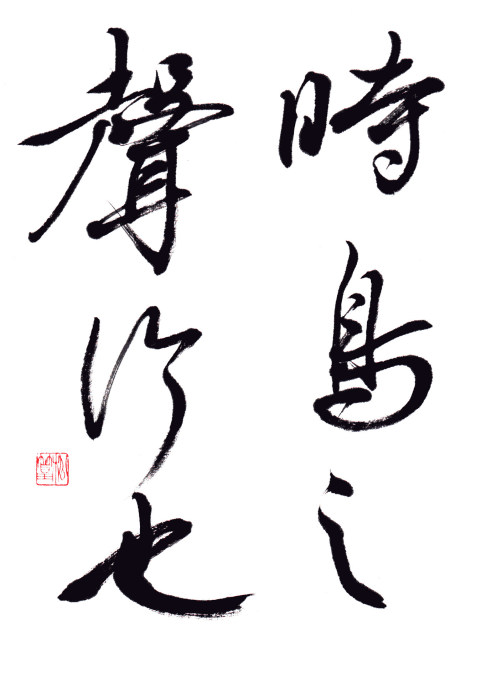 時鳥之
聲也